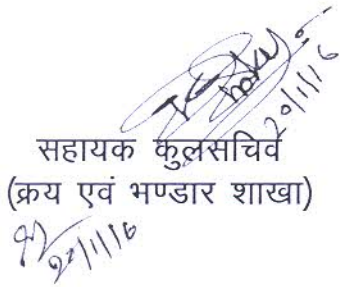 20/1/16
सहायक कुलसचिव
(क्रय एवं भण्डार शाखा)
20/1/16